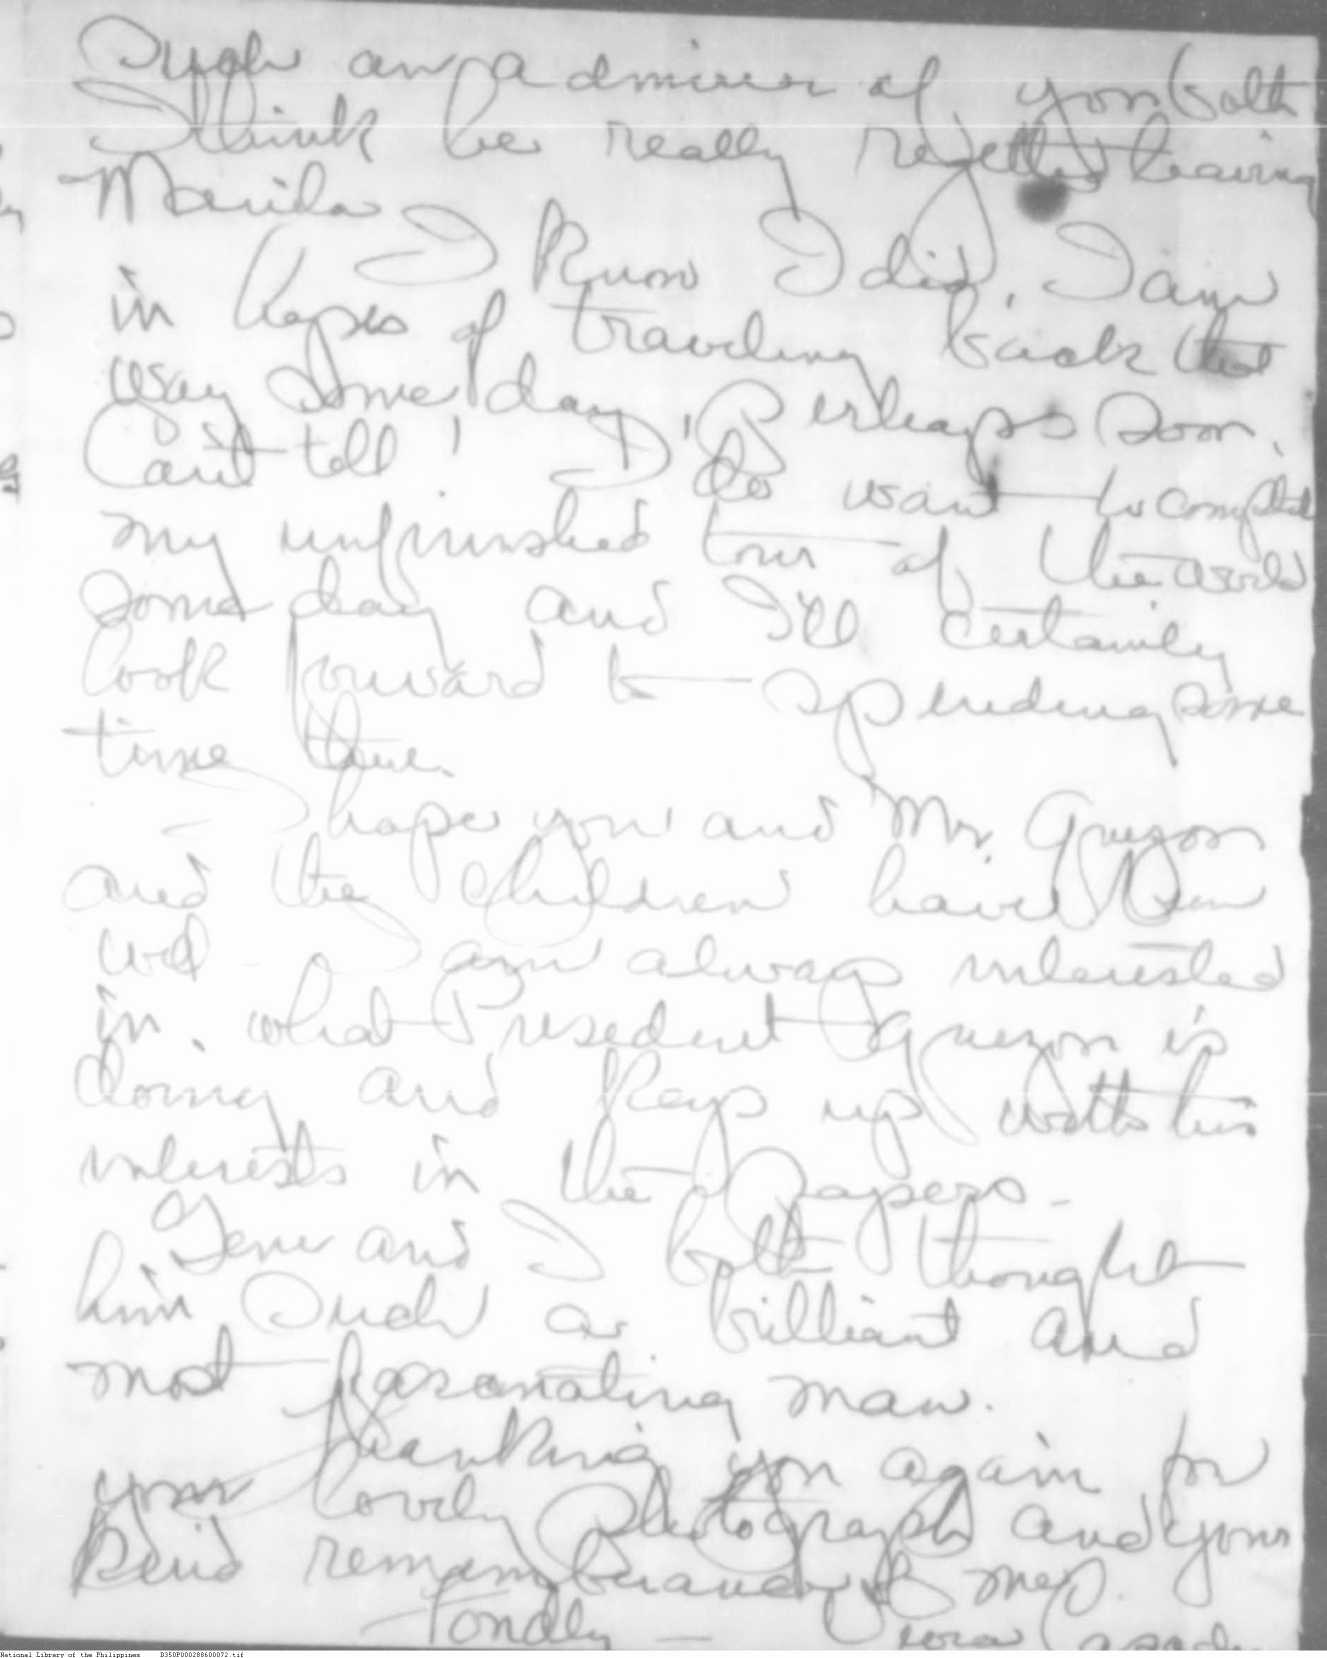 Such an admirer of you both
I think he really regretted leaving
Manila I know I did. I am
in hopes of traveling back that
way some day, Perhaps soon.
Can't tell! I do want to complete
my unfinished tour of the world
some day and I'll certainly
look forward to spending some
time there.
I hope you and Mr. Quezon
and the children have been
well - I am always interested
in what President Quezon is
doing and keep up with his
interests in the papers -
Gene and I both thought
him such a brilliant and
most fascinating man.
Thanking you again for
your lovely photograph and your
kind remembrance of me.
Fondly -
National Library of the Philippines B350P000288600072.tif